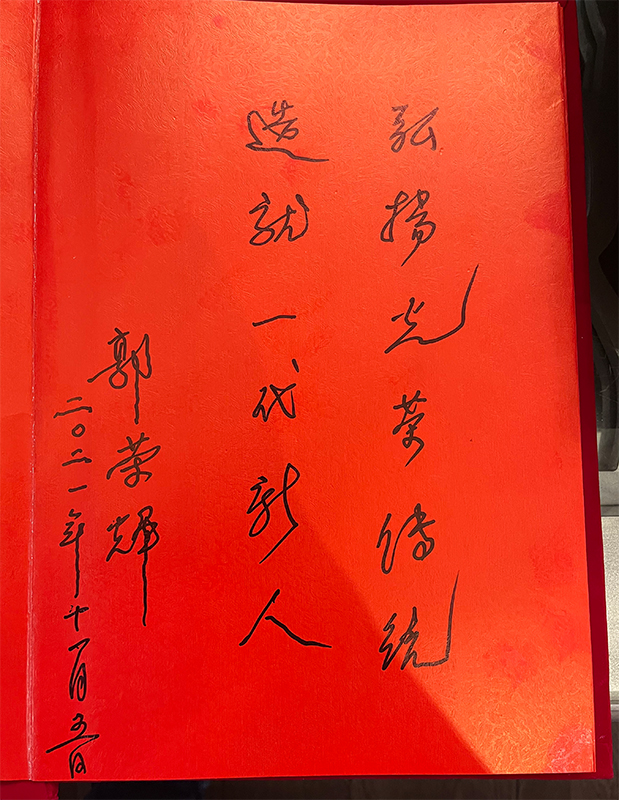 弘揚光荣傳統
造就一代新人
郭荣輝
二〇二一年十一月五日